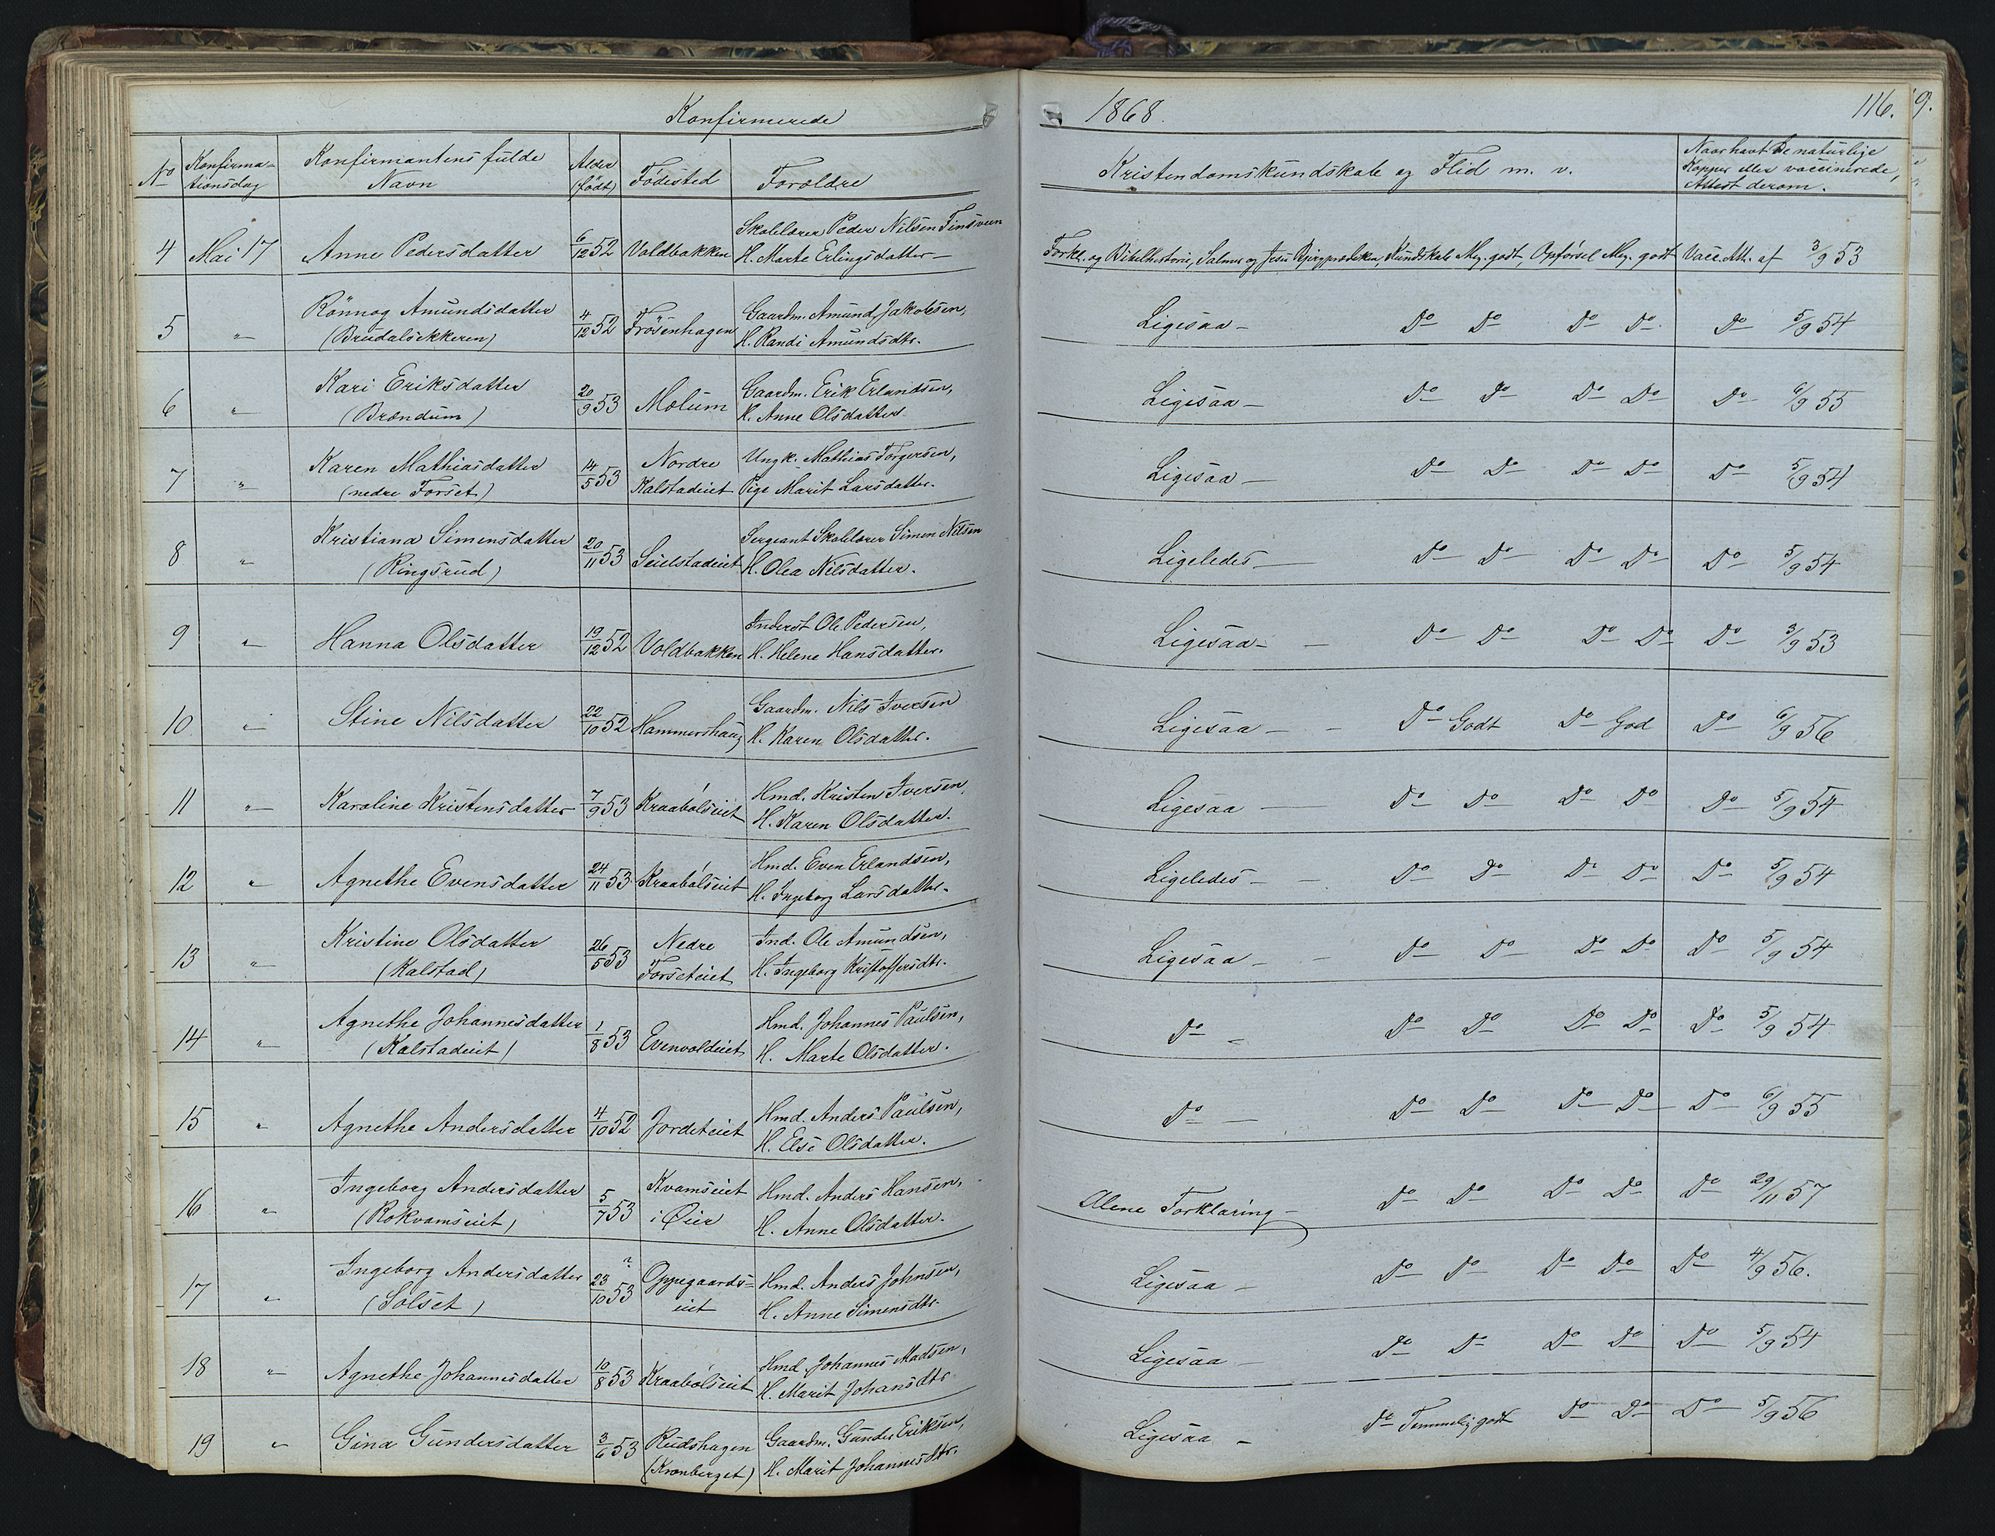 Konfirmerede 1868. 116. 9.
No Konfirma- tionsdag Konfirmantens fulde Navn Alder (født) Fødested Forældre Kristendomskundskab og Flid m. v. Naar havt De naturlige Kopper eller vaccinerede, Attest derom.
Skolelærer Peder Nilsen
4 Mai 17 Anne Pedersdatter 6/12 52 Voldbakken H. Marte Erlingsdatter- Forkl. og Bibelhistorie, Salmer og Jesu Bjergprædiken, Kundskab Meg. godt, Opførsel Meg. godt Vacc. Att. af 3/9 53
Rönnog Amundsdatter Gaardm. Amund Jakobsen,
5 " (Brudalsekkeren) 4/12 52 Frösenhagen H. Randi Amundsdtr. Ligesaa - Do Do Do Do Do 5/9 54
Kari Eriksdatter Gaardm. Erik Erlandsen,
6 " (Brændum) 20/9 53 Molum H. Anne Olsdatter Ligesaa - Do Do Do Do Do 6/9 55
Karen Mathiasdatter Nordre Ungk. Mathias Torgersen,
7 " (nedre Forset) 14/5 53 Kalstadeiet Pige Marit Larsdatter. Ligesaa - Do Do Do Do Do 5/9 54
Kristiana Simensdatter Sergeant Skolelærer Simen Nilsen
8 " (Ringsrud) 20/11 53 Seielstadeiet H. Olea Nilsdatter. Ligeledes - Do Do Do Do Do 5/9 54
Inderst Ole Pedersen,
9 " Hanna Olsdatter 19/12 52 Voldbakken H. Helene Hansdatter. Ligesaa - Do Do Do Do Do 3/9 53
Gaardm. Nils Iversen
10 " Stine Nilsdatter 22/10 52 Hammershaug H. Karen Olsdatter. Ligesaa - Do Godt Do God Do 6/9 56
Hmd. Kristen Iversen,
11 " Karoline Kristensdatter 7/9 53 Kraabølseiet H. Karen Olsdatter. Ligesaa - Do Do Do Do Do 5/9 54
Hmd. Even Erlandsen,
12 " Agnethe Evensdatter 24/11 53 Kraabølseiet H. Ingeborg Larsdatter. Ligeledes - Do Do Do Do Do 5/9 54
Kristine Olsdatter Nedre Ind. Ole Amundsen,
13 " (Kalstad) 26/5 53 Forseteiet H. Ingeborg Kristoffersdtr. Ligesaa - Do Do Do Do Do 5/9 54
Agnethe Johannesdatter Hmd. Johannes Paulsen,
14 " (Kalstadeiet) 1/8 53 Evenvoldeiet H. Marte Olsdatter. Do - Do Do Do Do Do 5/9 54
Hmd. Anders Paulsen,
15 " Agnethe Andersdatter 4/10 52 Jordeteiet H. Else Olsdatter. Do - Do Do Do Do Do 6/9 55
Ingeborg Andersdatter Kvamseiet Hmd. Anders Hansen,
16 " (Rokvamseiet) 5/7 53 i Øier H. Anne Olsdatter. Alene Forklaring - Do Do Do Do Do 29/11 57
Ingeborg Andersdatter ? Oppegaards- Hmd. Anders Johnsen,
17 " (Solset) 23/10 53 eiet H. Anne Simensdtr. Ligesaa - Do Do Do Do Do 4/9 56.
Hmd. Johannes Madsen,
18 " Agnethe Johannesdatter 10/8 53 Kraabølseiet H. Marit Johansdtr Ligesaa Do Do Do Do Do 5/9 54
19 " Gina Gundersdatter 3/6 53 Rudshagen Gaardm. Gunder Eriksen, Ligesaa - Do Temmelig godt Do Do Do 5/9 56
(Kronberget) H. Marit Johannesdtr.